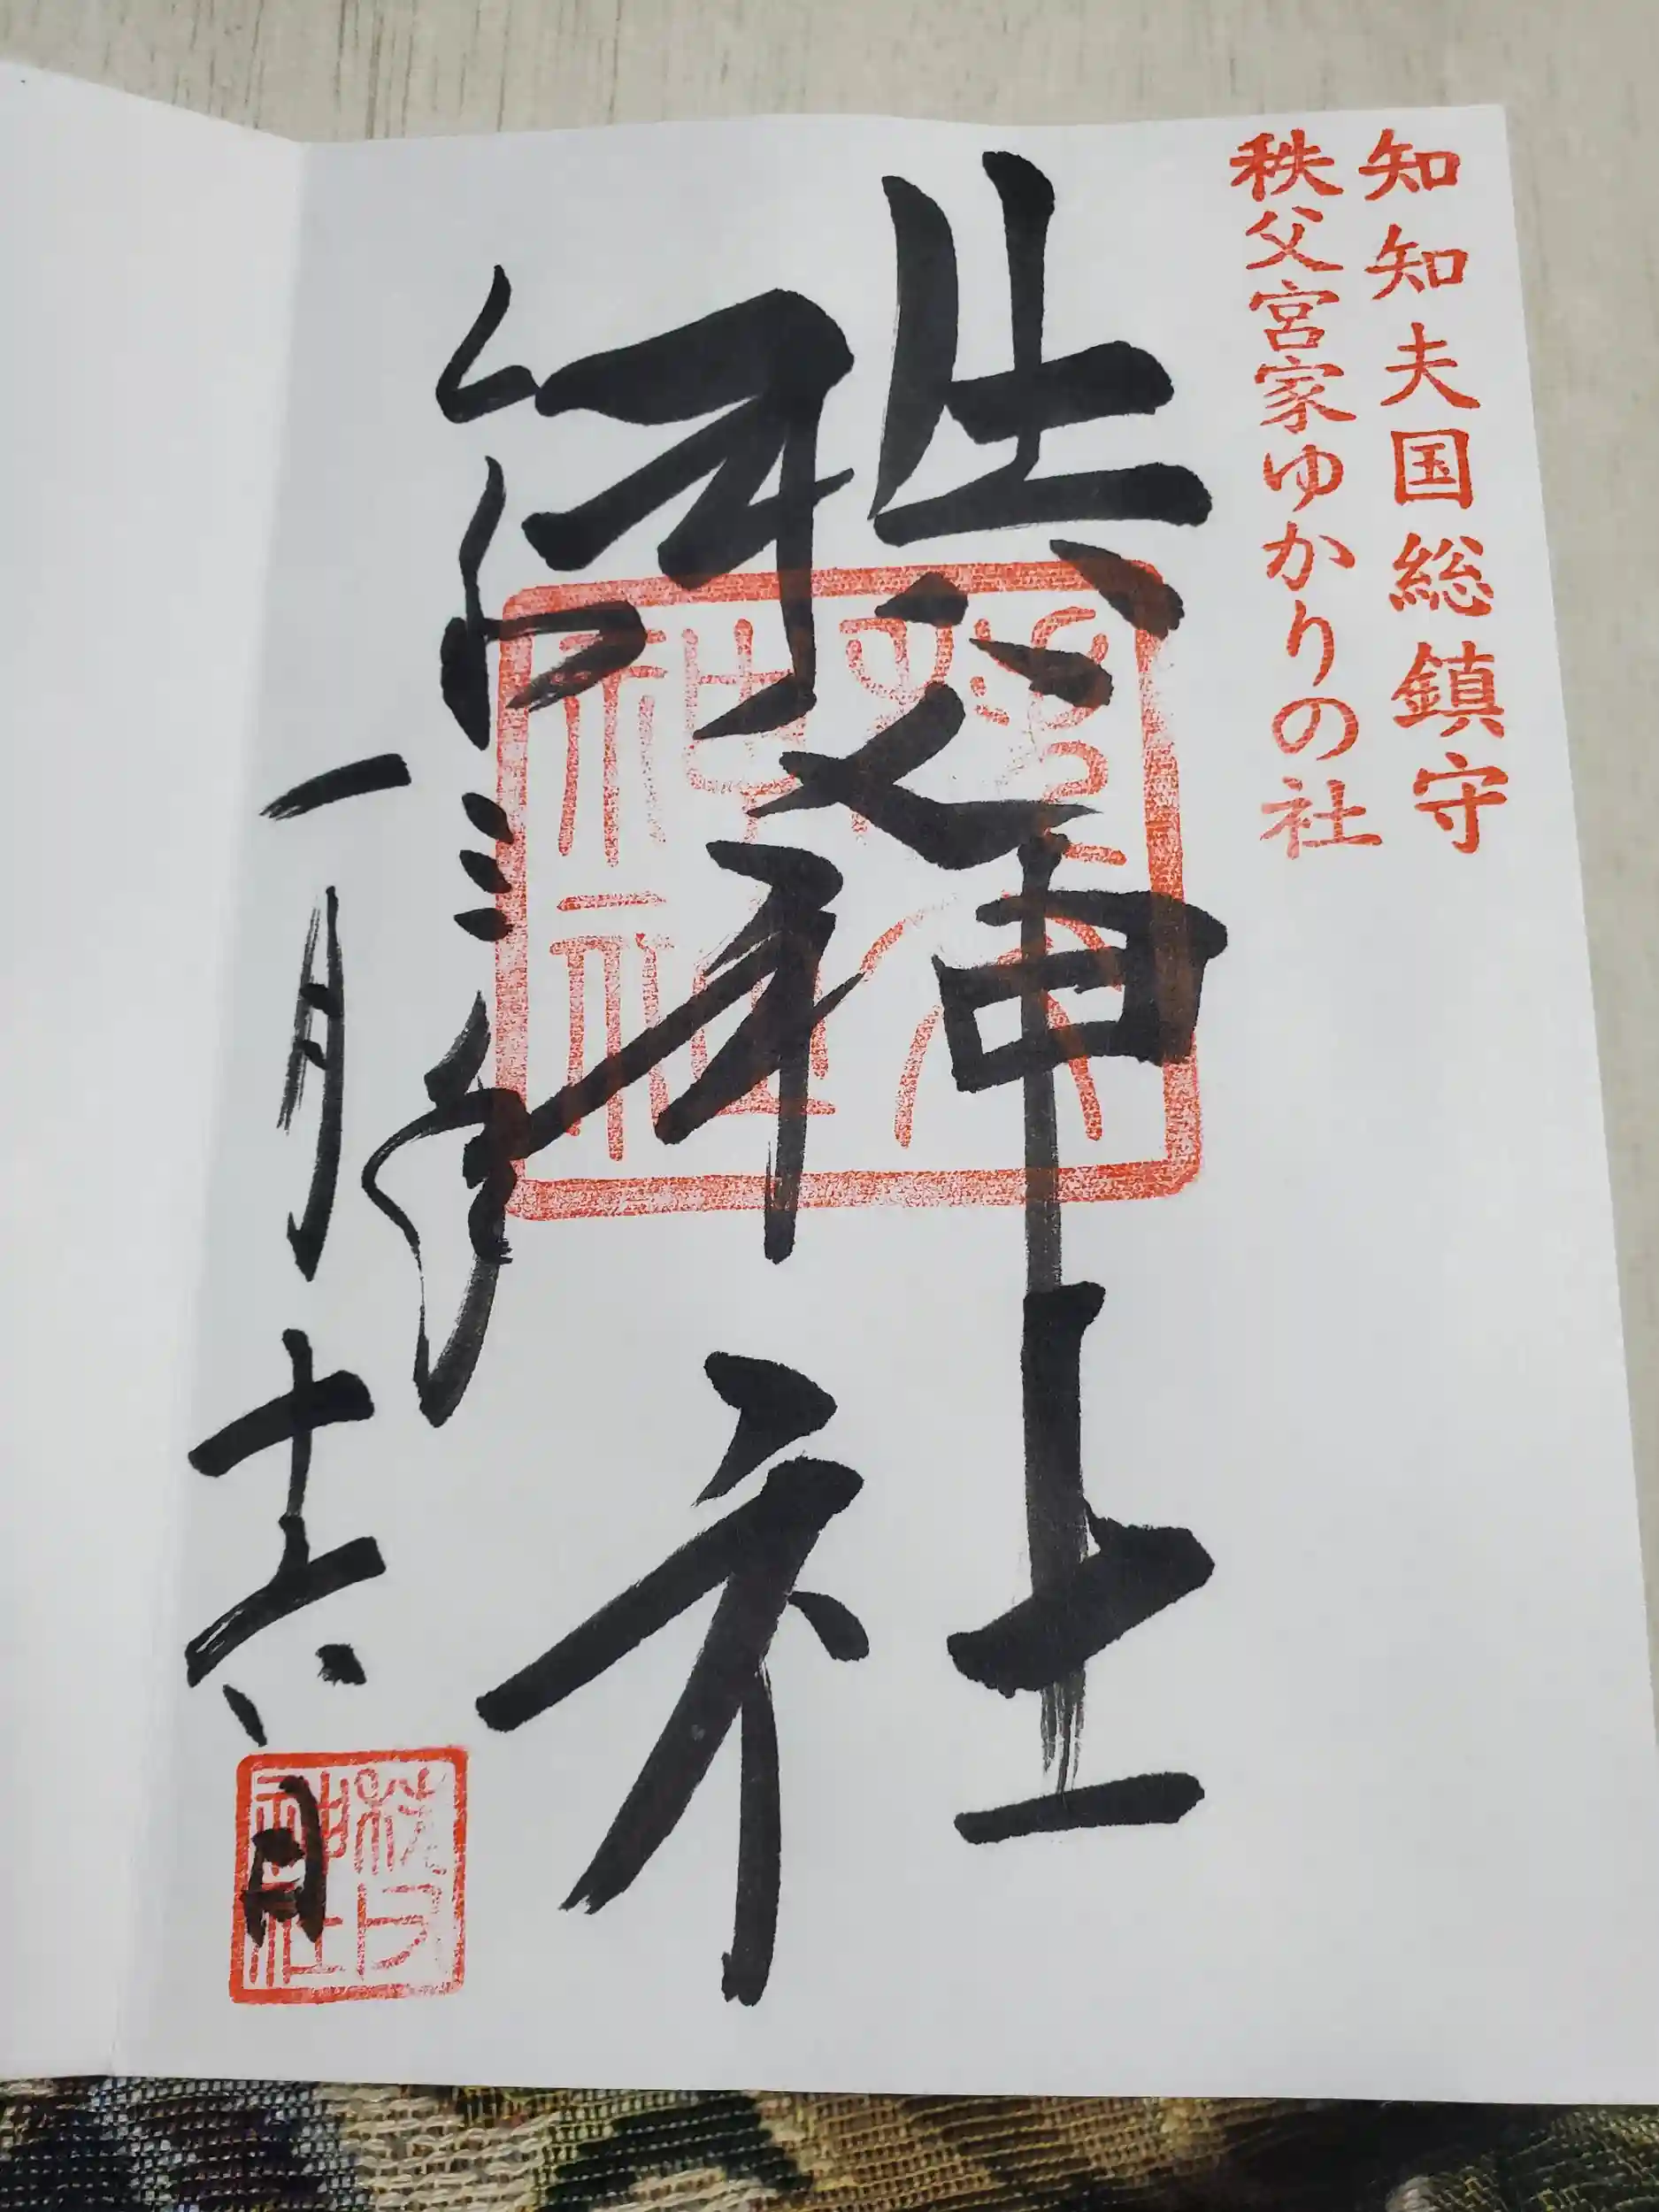 知知夫国総鎮守
秩父宮家ゆかりの社
秩父神社
令和三年
一月十六日
秩父神社